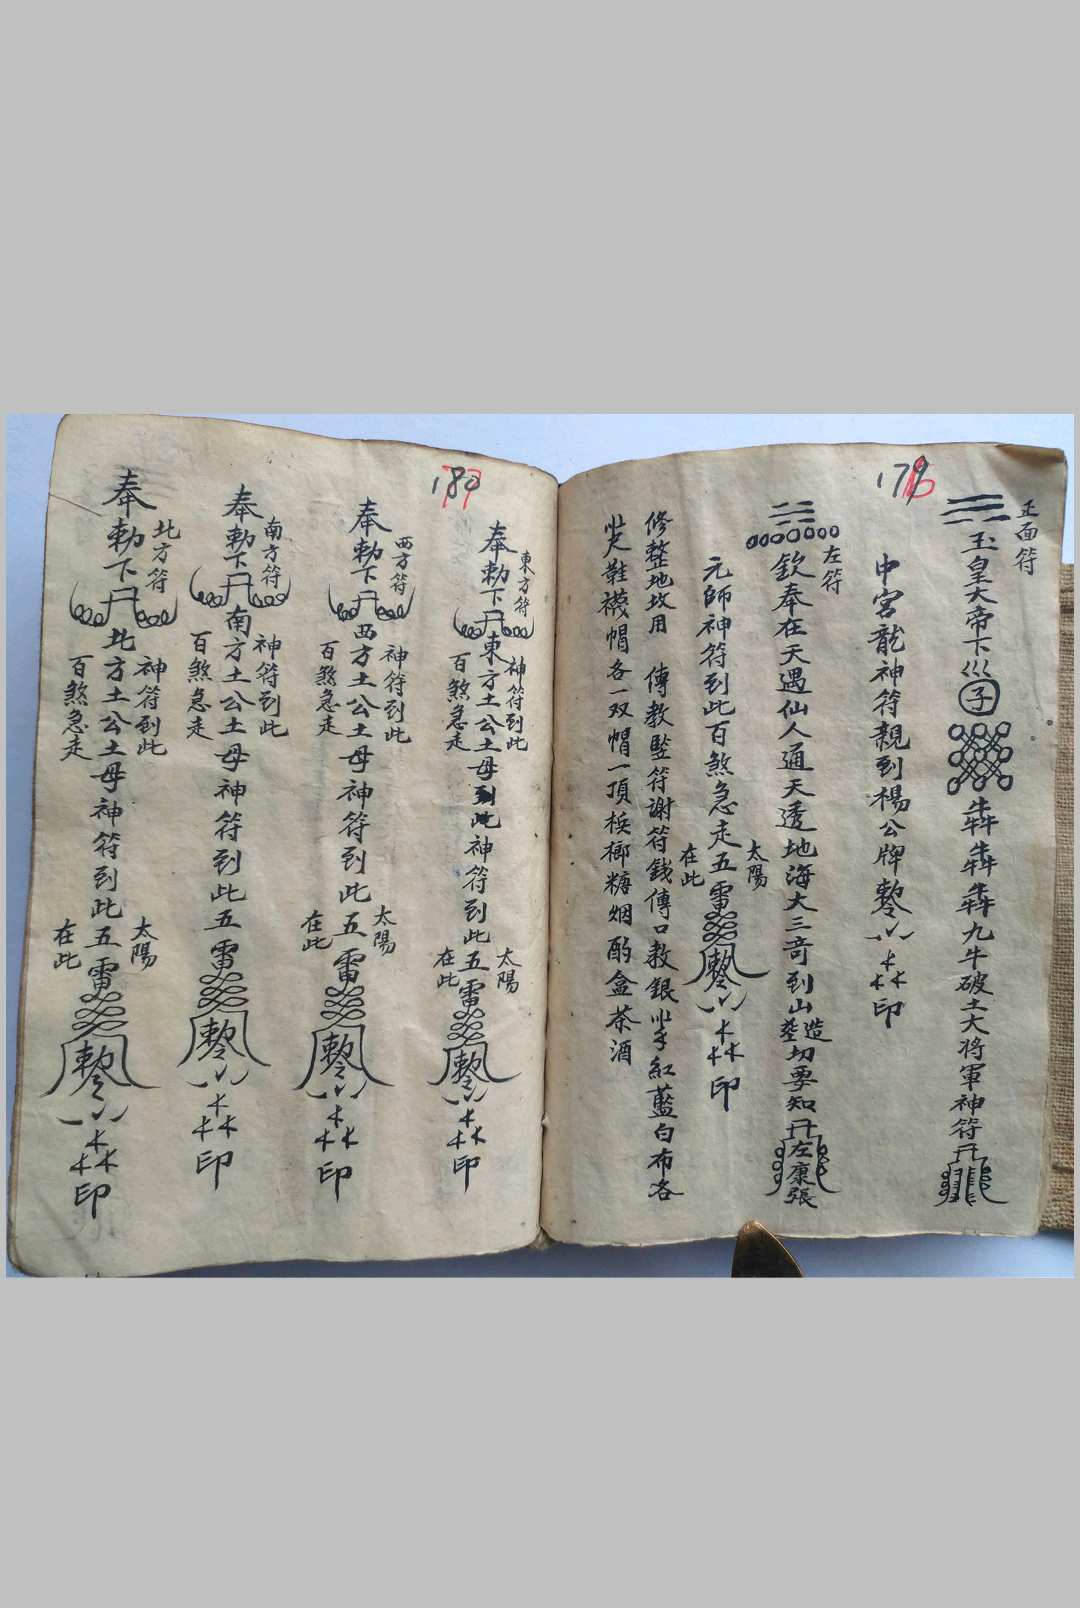 179
正面符
玉皇大帝下巛子犇犇犇九牛破土大將軍神符
中宮龍神符親到楊公牌
印
左符
欽奉在天遇仙人通天透地海大三奇到山造塟切要知左康張
元師神符到此百煞急走五雷
太陽
在此
印
修整地坟用 傳教竪符謝符錢傳口教銀 紅藍白布各
鞋襪帽各一双帽一頂梹榔糖烟酌盒茶酒
180
東方符
奉勅下東方土公土母神符到此五雷
神符到此
百煞急走
太陽
在此
印
西方符
奉勅下西方土公土母神符到此五雷
神符到此
百煞急走
太陽
在此
印
南方符
奉勅下南方土公土母神符到此五雷
神符到此
百煞急走
印
北方符
奉勅下北方土公土母神符到此五雷
神符到此
百煞急走
太陽
在此
印